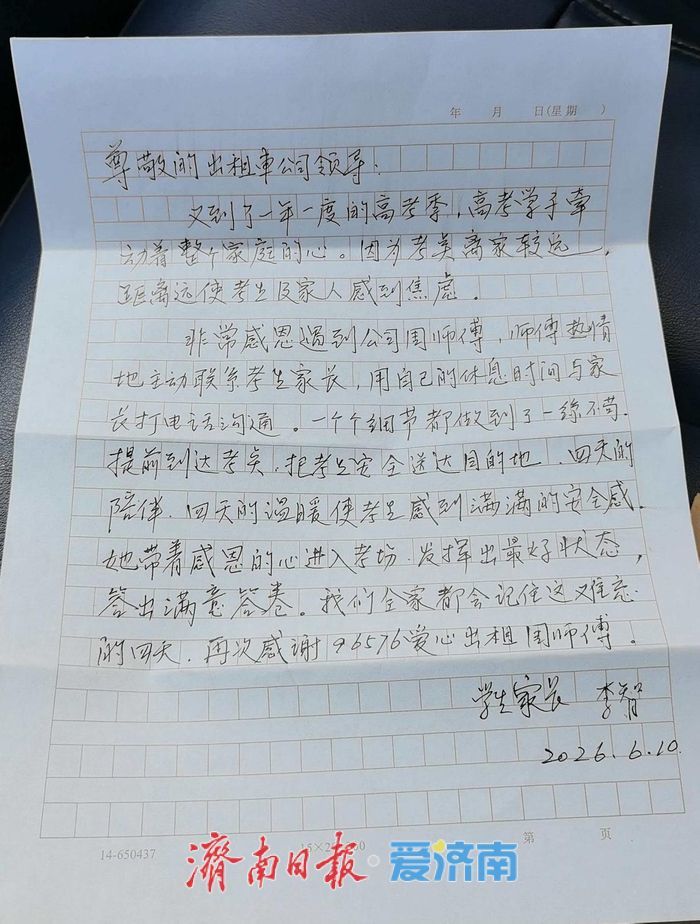 年 月 日(星期 )
尊敬的出租車公司领导:
又到了一年一度的高考季,高考学子牵
动着整个家庭的心。因为考点离家较远,
距离远使考生及家人感到焦虑。
非常感恩遇到公司周师傅,师傅热情
地主动联系考生家长,用自己的休息时间与家
长打电话沟通。一个个细节都做到了一丝不苟.
提前到达考点,把考生安全送达目的地.四天的
陪伴.四天的温暖使考生感到满满的安全感.
她带着感恩的心进入考场.发挥出最好状态,
答出满意答卷。我们全家都会记住这难忘
的四天.再次感谢96576爱心出租周师傅。
学生家长 李智
2026.6.10
14-650437
第 页
濟南日报·爱济南